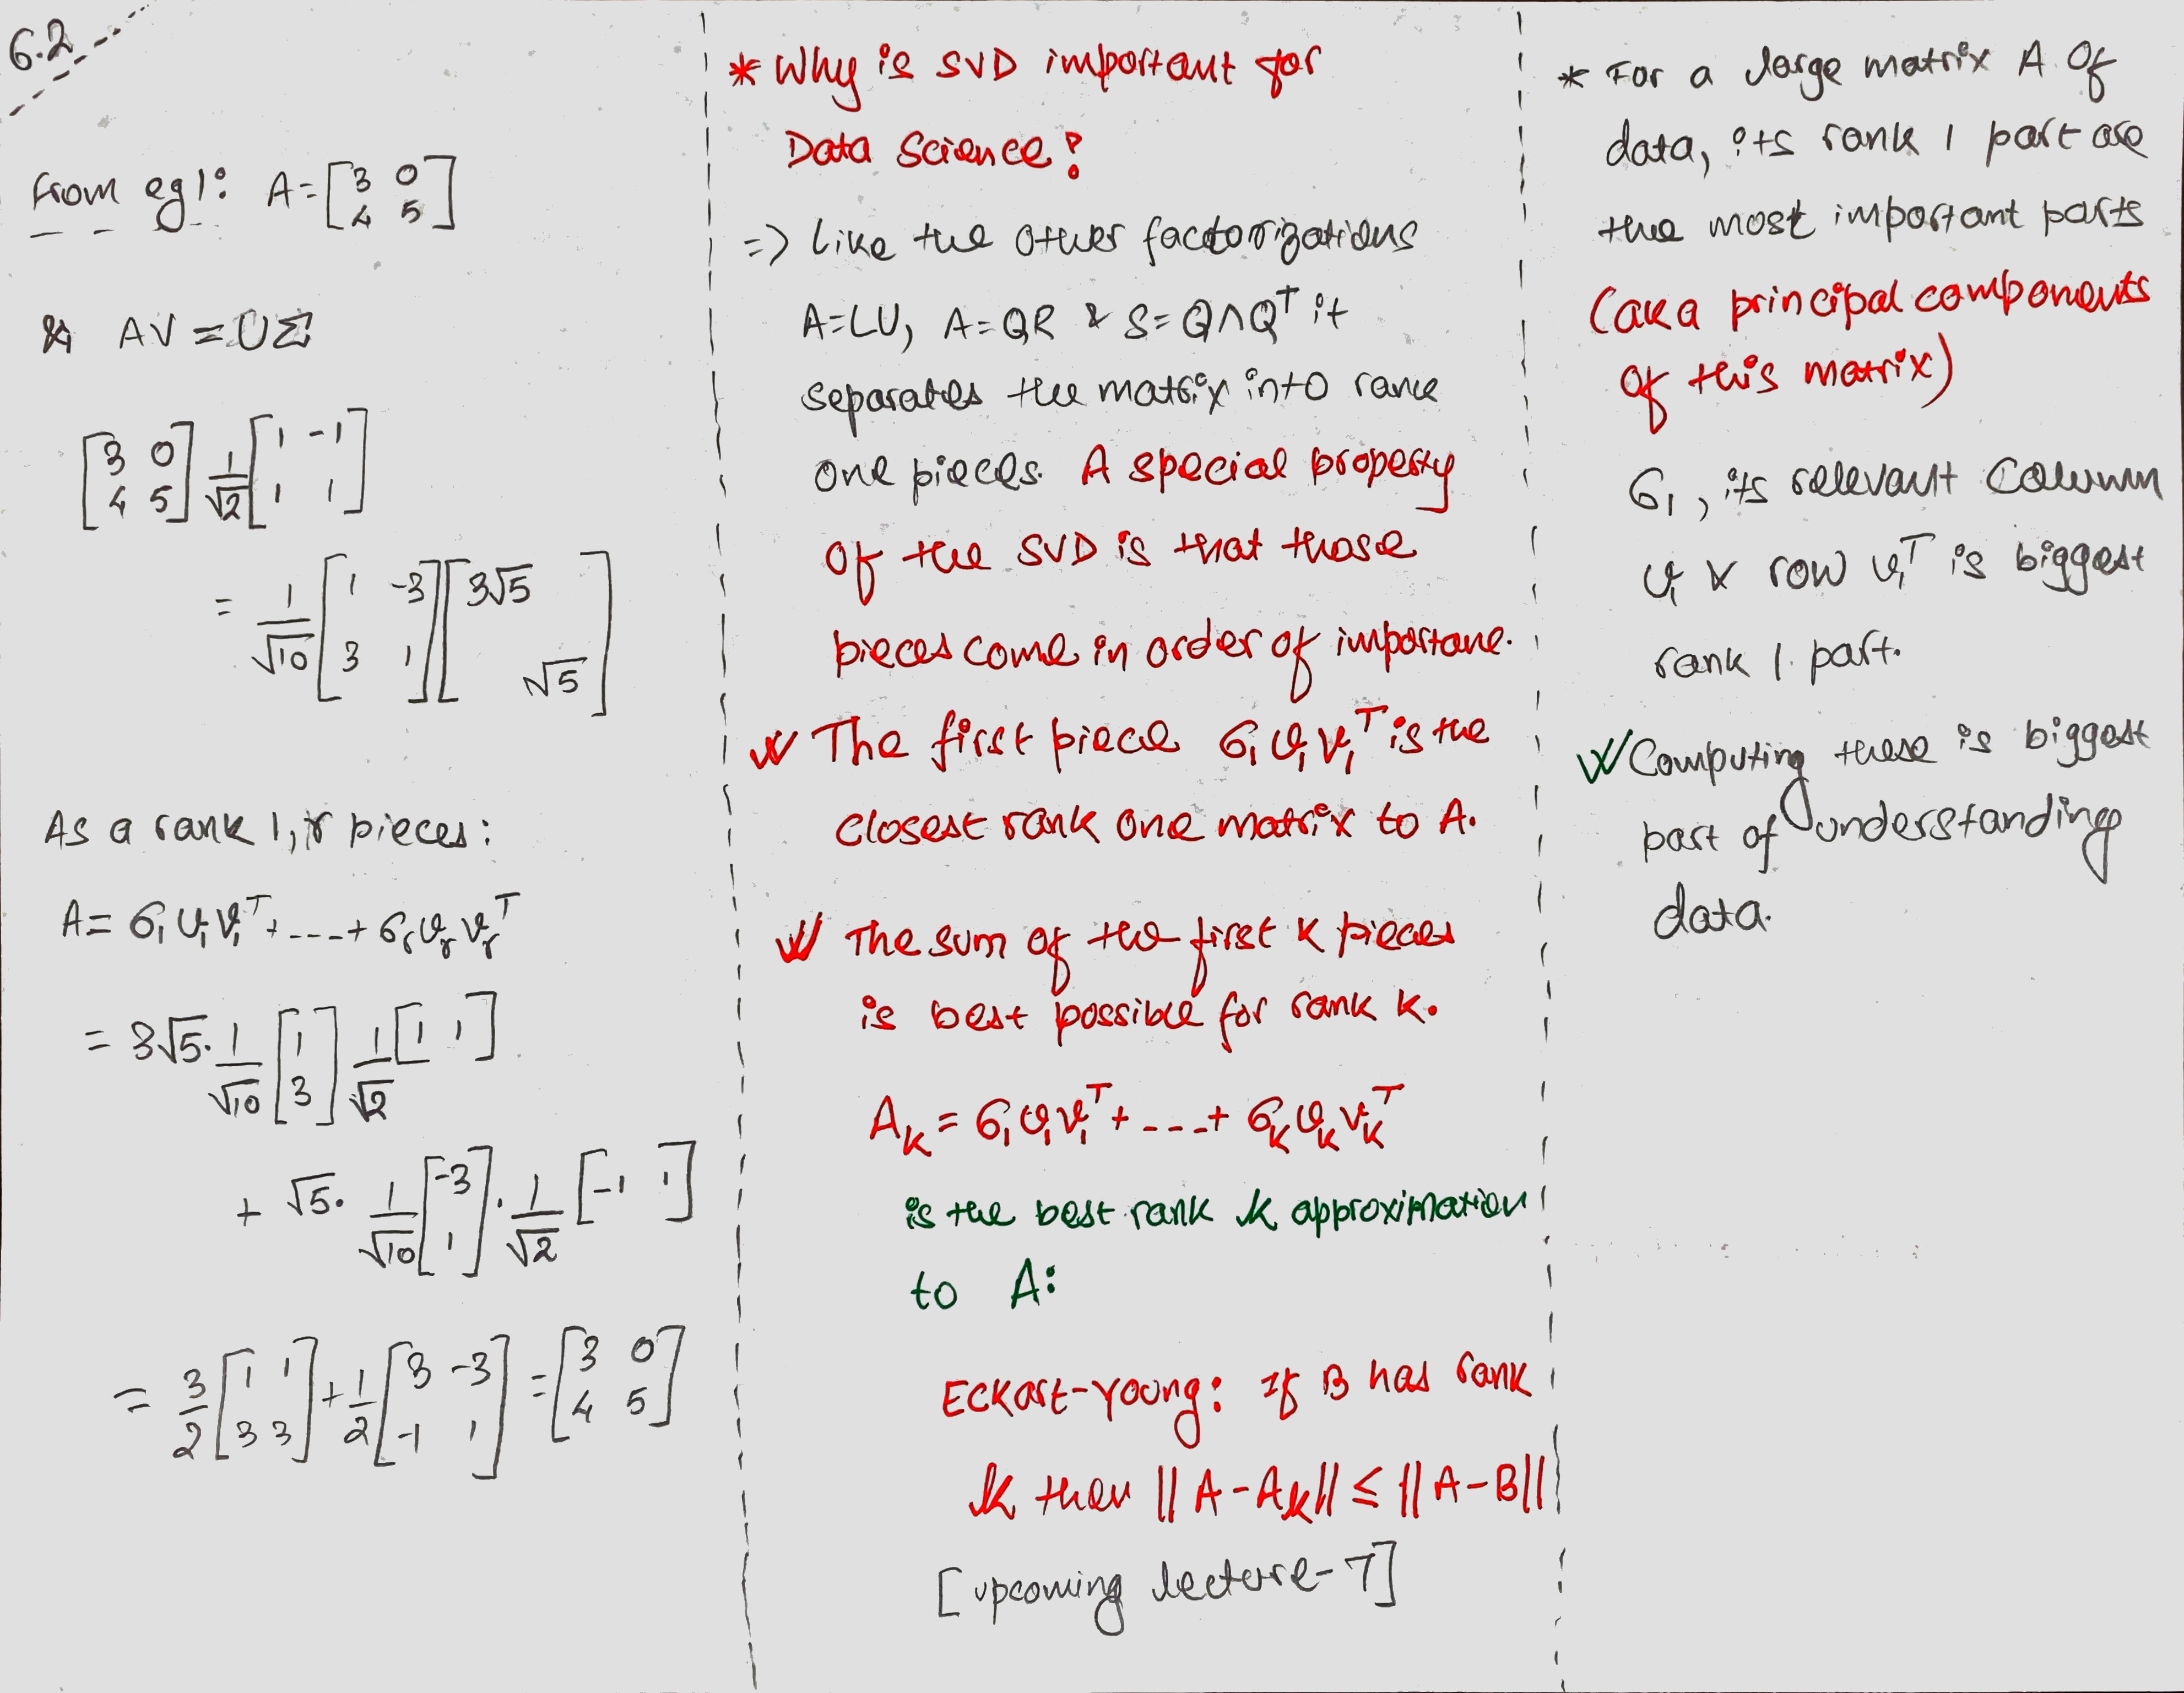 6.2
From eg1: A = [3 0; 4 5]
& AV = UΣ
[3 0; 4 5] 1/√2 [1 -1; 1 1]
= 1/√10 [1 -3; 3 1] [3√5  ;  √5]
As a rank 1, r pieces:
A = σ₁u₁v₁ᵀ + ---- + σᵣuᵣvᵣᵀ
= 3√5 · 1/√10 [1; 3] 1/√2 [1 1]
+ √5 · 1/√10 [-3; 1] · 1/√2 [-1 1]
= 3/2 [1 1; 3 3] + 1/2 [3 -3; -1 1] = [3 0; 4 5]
* Why is SVD important for
Data Science?
=> Like the other factorizations
A=LU, A=QR & S=QΛQᵀ it
separates the matrix into rank
one pieces. A special property
of the SVD is that those
pieces come in order of importane.
The first piece σ₁u₁v₁ᵀ is the
closest rank one matrix to A.
The sum of the first K pieces
is best possible for rank K.
A_K = σ₁u₁v₁ᵀ + ---- + σ_K u_K v_Kᵀ
is the best rank k approximation
to A:
Eckart-Young: If B has rank
k then ||A-A_k|| ≤ ||A-B||
[upcoming lecture-7]
* For a large matrix A of
data, its rank 1 part are
the most important parts
(aka principal components
of this matrix)
σ₁, its relevant Column
u₁ & row v₁ᵀ is biggest
rank 1 part.
Computing these is biggest
part of understanding
data.